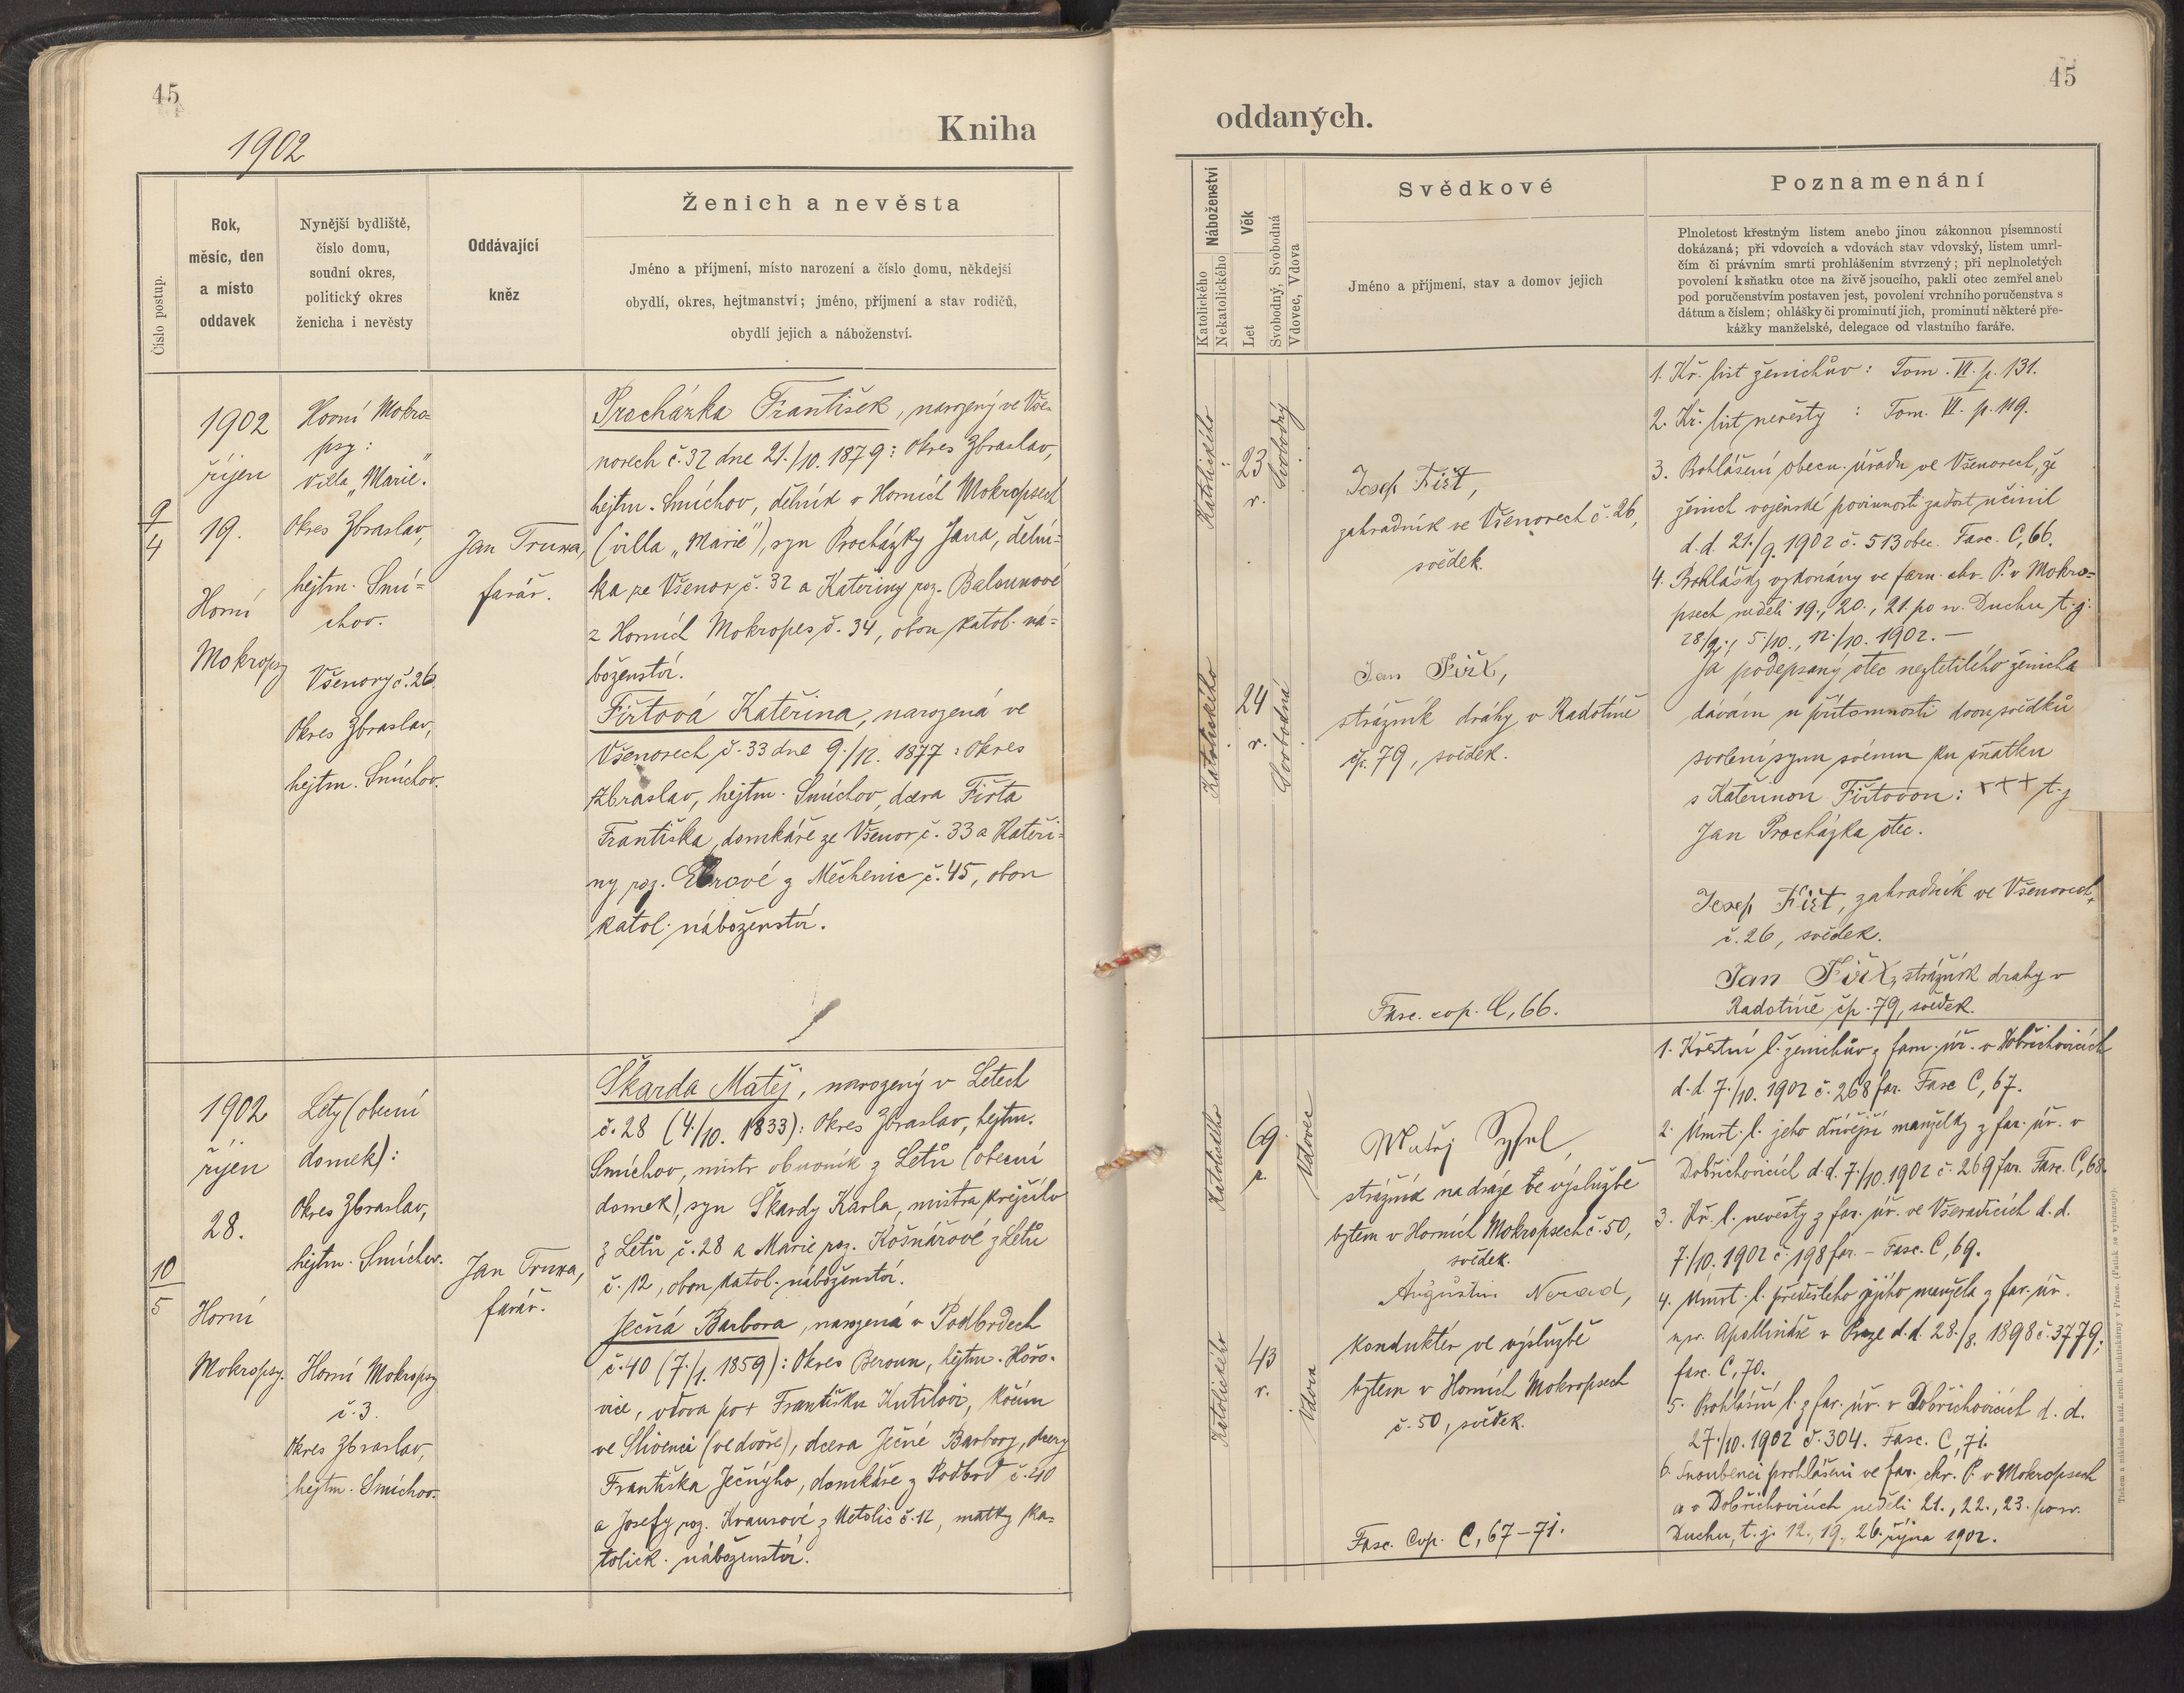 45
1902
Kniha
Číslo postup.
Rok,
měsíc, den
a místo
oddavek
Nynější bydliště,
číslo domu,
soudní okres,
politický okres
ženicha i nevěsty
Oddávající
kněz
Ženich a nevěsta
Jméno a příjmení, místo narození a číslo domu, někdejší
obydlí, okres, hejtmanství; jméno, příjmení a stav rodičů,
obydlí jejich a náboženství.
9
4
1902
říjen
19.
Horní
Mokropsy
Horní Mokro-
psy:
villa „Marie“.
Okres Zbraslav,
hejtm. Smí-
chov.
Všenory č. 26
Okres Zbraslav,
hejtm. Smíchov.
Jan Truxa,
farář.
Procházka František, narozený ve Vše-
norech č. 32 dne 21./10. 1879: Okres Zbraslav,
hejtm. Smíchov, dělník v Horních Mokropsech
(villa „Marie“), syn Procházky Jana, dělní-
ka ze Všenor č. 32 a Kateřiny roz. Balounové
z Horních Mokropes č. 34, obou katol. ná-
boženství.
Firtová Kateřina, narozená ve
Všenorech č. 33 dne 9./12. 1877: Okres
Zbraslav, hejtm. Smíchov, dcera Firta
Františka, domkáře ze Všenor č. 33 a Kateři-
ny roz. z Měchenic č. 45, obou
katol. náboženství.
10
5
1902
říjen
28.
Horní
Mokropsy.
Lety (obecní
domek):
Okres Zbraslav,
hejtm. Smíchov.
Horní Mokropsy
č. 3.
Okres Zbraslav,
hejtm. Smíchov.
Jan Truxa,
farář.
Škarda Matěj, narozený v Letech
č. 28 (4./10. 1833): Okres Zbraslav, hejtm.
Smíchov, mistr obuvník z Letů (obecní
domek), syn Škardy Karla, mistra krejčího
z Letů č. 28 a Marie roz. Košnářové z Letů
č. 12, obou katol. náboženství.
Ječná Barbora, narozená v Podbrdech
č. 40 (7./1. 1859): Okres Beroun, hejtm. Hořo-
vice, vdova po + Františku Kutilovi, kočím
ve Slivenci (ve dvoře), dcera Ječné Barbory, dcery
Františka Ječnýho, domkáře z Podbrd č. 40
a Josefy roz. Krausové z Netolic č. 12, matky ka-
tolick. náboženství.
45
oddaných.
Náboženství
Katolického
Nekatolického
Věk
Let
Svobodný, Svobodná
Vdovec, Vdova
Svědkové
Jméno a příjmení, stav a domov jejich
Poznamenání
Plnoletost křestným listem anebo jinou zákonnou písemností
dokázaná; při vdovcích a vdovách stav vdovský, listem umrl-
čím či právním smrti prohlášením stvrzený; při neplnoletých
povolení k sňatku otce na živě jsoucího, pakli otec zemřel aneb
pod poručenstvím postaven jest, povolení vrchního poručenstva s
dátum a číslem; ohlášky či prominutí jich, prominutí některé pře-
kážky manželské, delegace od vlastního faráře.
Katolického
23
r.
Svobodný
Katolického
24
r.
Svobodná
Josef Firt,
zahradník ve Všenorech č. 26,
svědek.
Jan Fiřt,
strážník dráhy v Radotíně
čp. 79, svědek.
Fasc. cop. C, 66.
1. Kř. list ženichův: Tom. VI. p. 131.
2. Kř. list nevěsty : Tom. VI. p. 119.
3. Prohlášení obecn. úřadu ve Všenorech, že
ženich vojenské povinnosti zadost učinil
d.d. 21./9. 1902 č. 513 obec. Fasc. C, 66.
4. Prohlášky vykonány ve farn. chr. P. v Mokro-
psech neděli 19., 20., 21. po sv. Duchu t.j.
28./9., 5./10., 12./10. 1902. —
Já podepsaný otec nezletilého ženicha
dávám u přítomnosti dvou svědků
svolení synu svému ku sňatku
s Kateřinou Firtovou: +++ t.j.
Jan Procházka otec.
Josef Firt, zahradník ve Všenorech,
č. 26, svědek.
Jan Fiřt, strážník drahy v
Radotíně čp. 79, svědek.
Katolického
69
r.
Vdovec
Katolického
43
r.
Vdova
Matěj
strážník na dráze ve výslužbě
bytem v Horních Mokropsech č. 50,
svědek.
Augustin Nerad,
konduktér ve výslužbě
bytem v Horních Mokropsech
č. 50, svědek.
Fasc. Cop. C, 67–71.
1. Křestní l. ženichův z farn. úř. v Dobřichovicích
d.d. 7./10. 1902 č. 268 far. Fasc C, 67.
2. Úmrt. l. jeho dřívější manželky z far. úř. v
Dobřichovicích d.d. 7./10. 1902 č. 269 far. Fasc. C, 68.
3. Kř. l. nevěsty z far. úř. ve Všeradicích d.d.
7./10. 1902 č. 198 far. – Fasc. C, 69.
4. Úmrt. l. předešlého jejího manžela z far. úř.
u sv. Apollináře v Praze d.d. 28./8. 1898 č. 3779;
fasc. C, 70.
5. Prohlášní l. z far. úř. v Dobřichovicích d.d.
27./10. 1902 č. 304. Fasc. C, 71.
6. Snoubenci prohlášeni ve far. chr. P. v Mokropsech
a v Dobřichovicích neděli 21., 22., 23. po sv.
Duchu, t.j. 12., 19., 26. října 1902.
Tiskem a nákladem kníž. arcib. knihtiskárny v Praze. (Patisk se vyhrazuje).